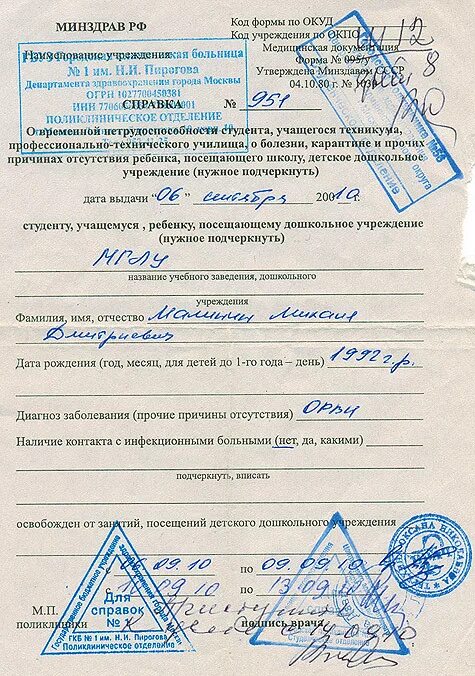 МИНЗДРАВ РФ
Код формы по ОКУД
Код учреждения по ОКПО
Медицинская документация
Форма № 095/у
Утверждена Минздравом СССР
04.10.80 г. № 1030
Наименование учреждения
больница
№ 1 им. Н.И. Пирогова
Департамента здравоохранения города Москвы
ОГРН 1027700450381
ИНН
ПОЛИКЛИНИЧЕСКОЕ ОТДЕЛЕНИЕ
СПРАВКА № 951
о временной нетрудоспособности студента, учащегося техникума,
профессионально-технического училища о болезни, карантине и прочих
причинах отсутствия ребенка, посещающего школу, детское дошкольное
учреждение (нужное подчеркнуть)
дата выдачи "06" сентября 2010г.
студенту, учащемуся , ребенку, посещающему дошкольное учреждение
(нужное подчеркнуть)
МГЛУ
название учебного заведения, дошкольного
учреждения
Фамилия, имя, отчество Малинин Михаил
Дмитриевич
Дата рождения (год, месяц, для детей до 1-го года – день) 1992 г.р.
Диагноз заболевания (прочие причины отсутствия) ОРВИ
Наличие контакта с инфекционными больными (нет, да, какими)
подчеркнуть, вписать
освобожден от занятий, посещений детского дошкольного учреждения
с 06.09.10 по 09.09.10
с 09.10 по 13.09.10
М.П.
поликлиники
подпись врача
Для
справок
№
ГКБ № 1 им. Н.И. Пирогова
Поликлиническое отделение